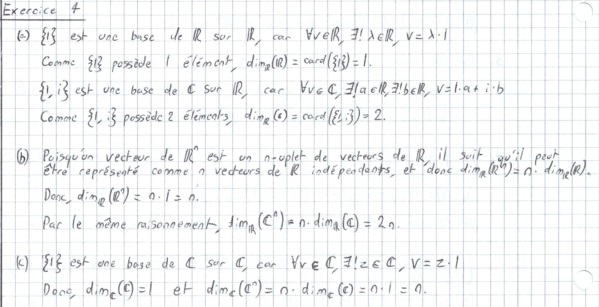 Exercice 4
(a) {1} est une base de ℝ sur ℝ, car ∀v∈ℝ, ∃! λ∈ℝ, v = λ·1
Comme {1} possède 1 élément, dim_ℝ(ℝ) = card({1}) = 1.
{1, i} est une base de ℂ sur ℝ, car ∀v∈ℂ, ∃!a∈ℝ, ∃!b∈ℝ, v = 1·a + i·b
Comme {1, i} possède 2 éléments, dim_ℝ(ℂ) = card({1, i}) = 2.
(b) Puisqu'un vecteur de ℝⁿ est un n-uplet de vecteurs de ℝ, il suit qu'il peut
être représenté comme n vecteurs de ℝ indépendants, et donc dim_ℝ(ℝⁿ) = n·dim_ℝ(ℝ).
Donc, dim_ℝ(ℝⁿ) = n·1 = n.
Par le même raisonnement, dim_ℝ(ℂⁿ) = n·dim_ℝ(ℂ) = 2n.
(c) {1} est une base de ℂ sur ℂ, car ∀v∈ℂ, ∃!z∈ℂ, v = z·1
Donc, dim_ℂ(ℂ) = 1 et dim_ℂ(ℂⁿ) = n·dim_ℂ(ℂ) = n·1 = n.